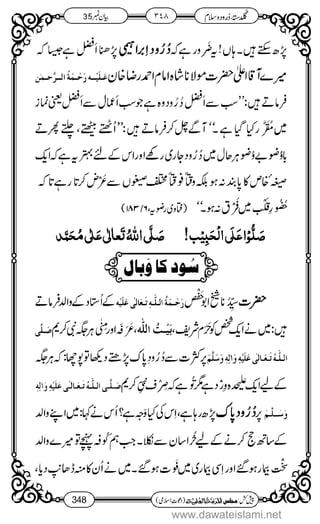 بیان نمبر 35
۳۴۸
گلدستۂ درود و سلام
پڑھ سکتے ہیں۔ ہاں! یہ ضرور ہے کہ دُرُودِ ابراہیمی پڑھنا اَفضل ہے جیسا کہ
میرے آقا اعلیٰ حضرت مولانا شاہ امام احمد رضا خان عَلَیْہِ رَحْمَۃُ الرَّحْمٰن
فرماتے ہیں: ’’سب سے اَفضل دُرُود وہ ہے جو سب اَعمال سے اَفضل یعنی نماز
میں مُقَرَّر کیا گیا ہے۔‘‘ آگے چل کر فرماتے ہیں: ’’اُٹھتے بیٹھتے، چلتے پھرتے
باوُضو بے وُضو ہر حال میں دُرُود جاری رکھے اور اس کے لئے بہتر یہ ہے کہ ایک
صیغۂ خاص کا پابند نہ ہو بلکہ وقتاً فوقتاً مختلف صیغوں سے عَرض کرتا رہے تاکہ
حُضُورِ قلب میں فَرق نہ ہو۔‘‘ (فتاوی رضویہ، ۶/۱۸۳)
صَلُّوْا عَلَی الْحَبِیْب! صَلَّی اللّٰہُ تَعَالٰی عَلٰی مُحَمَّد
سُود کا وَبال
حضرت سیِّدُنا شیخ ابو حَفْص رَحْمَۃُ اللّٰہِ تَعَالٰی عَلَیْہ کے اُستاد کے والد فرماتے
ہیں: میں نے ایک شخص کو حَرَم شریف، بَیْتُ اللّٰہ، عَرَفہ اور مِنٰی ہر جگہ نبی کریم صَلَّی
اللّٰہُ تَعَالٰی عَلَیْہِ وَاٰلِہٖ وَسَلَّم پر کثرت سے دُرُودِ پاک پڑھتے دیکھا تو پوچھا: کہ ہر جگہ
کے لیے ایک علیحدہ وِرد ہے مگر تو ہے کہ صرف نبی کریم صَلَّی اللّٰہُ تَعَالٰی عَلَیْہِ وَاٰلِہٖ
وَسَلَّم پر دُرُودِ پاک پڑھ رہا ہے، اس کی کیا وجہ ہے؟ اُس نے کہا: میں اپنے والد
کے ساتھ حج کرنے کے لیے خُراسان سے نکلا۔ جب ہم کوفہ پہنچے تو میرے والد
سخت بیمار ہوگئے اور اِسی بیماری میں فوت ہوگئے۔ میں نے اُن کا منہ ڈھانپ دیا،
348
www.dawateislami.net